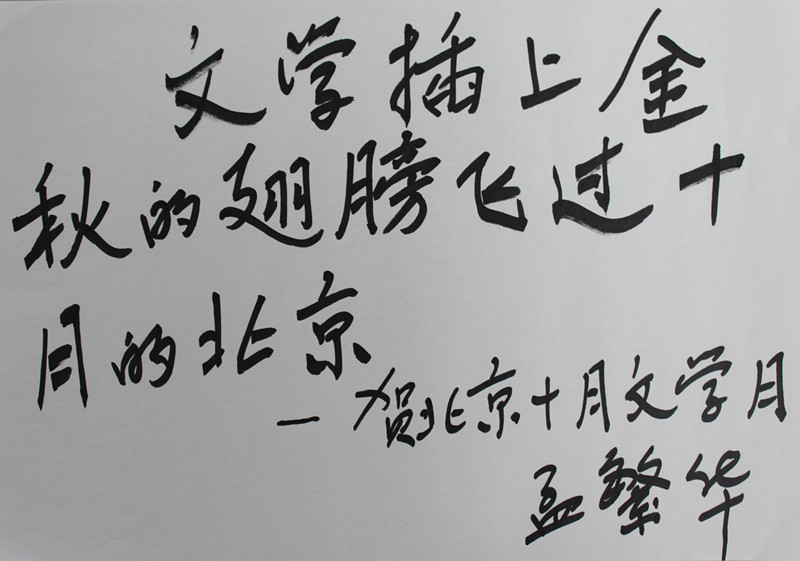 文学插上金
秋的翅膀飞过十
月的北京
—贺北京十月文学月
孟繁华